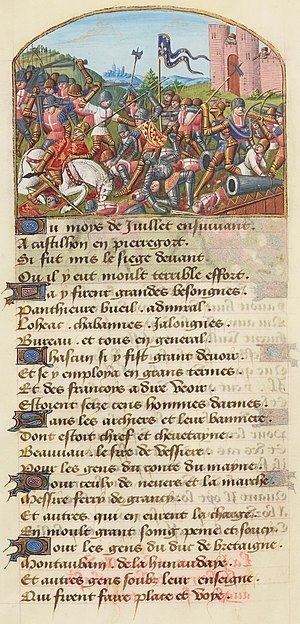 Ou moys de Juillet ensuivant.
A castillon en pierregort.
Si fut mis le siege devant
Ou il y eut moult terrible effort.
La y furent grandes besongnes.
Panthieure bueil. admiral.
Loheac. chabannes. Jalongnes.
Bureau. et tous en general
Chascun si y fist grant devoir.
Et se y employa en grans termes.
Et des francoys a dire veoir.
Estoient seize cens hommes darmes.
Sans les archiers et leur banniere.
Dont estoit chief et chevetayne.
Beauvau. le sire de Bessiere.
Pour les gens du conte du mayne.
Pour ceulx de nevers et la marche.
Messire ferry de grancy.
Et autres. qui en eurent la charge.
En moult grant soing peine et soucy.
Pour les gens du duc de bretaigne.
Montauban. de la hunauldaye.
Et autres gens soubz leur enseigne.
Qui firent faire place et voye.